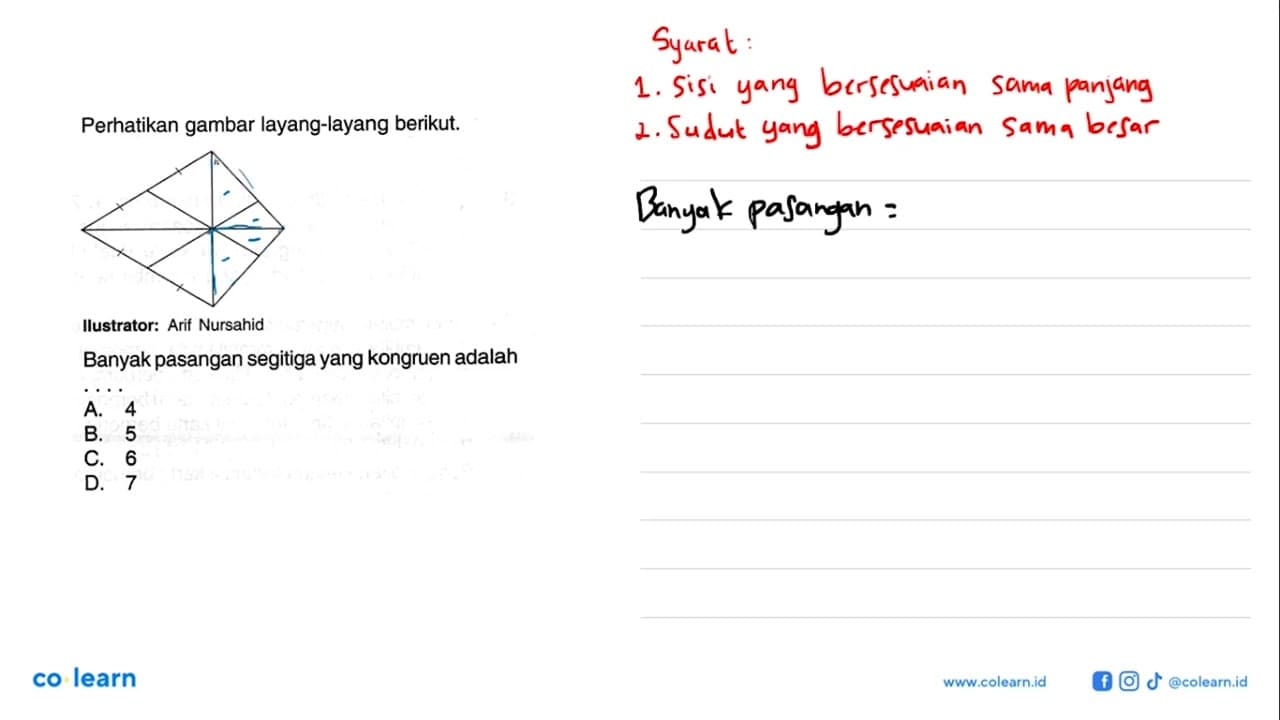 Perhatikan gambar layang-layang berikut.
Ilustrator: Arif Nursahid
Banyak pasangan segitiga yang kongruen adalah
....
A. 4
B. 5
C. 6
D. 7
Syarat:
1. Sisi yang bersesuaian sama panjang
2. Sudut yang bersesuaian sama besar
Banyak pasangan =
co learn
www.colearn.id
@colearn.id